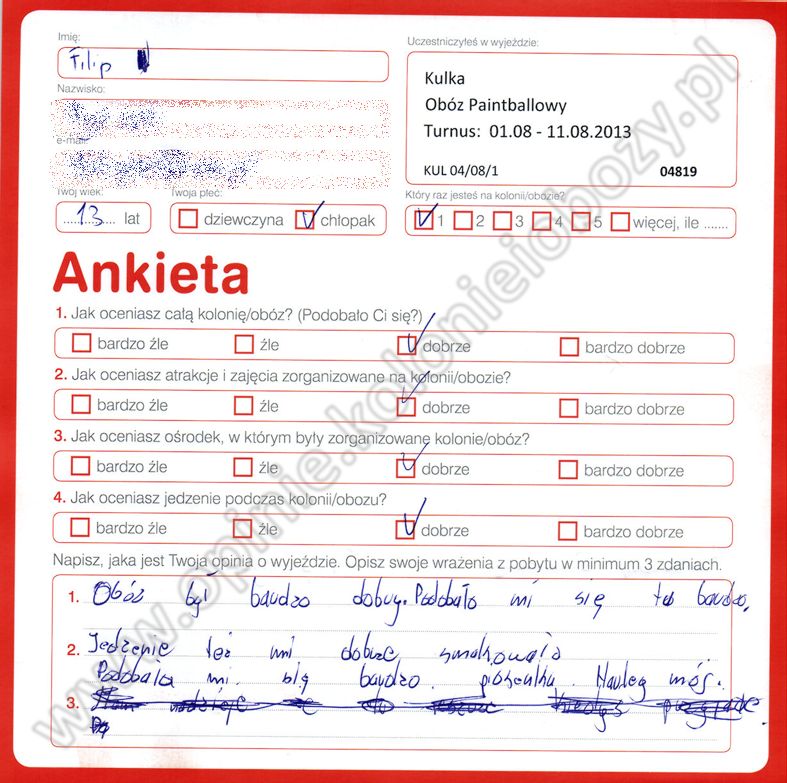 Imię:
Filip
Uczestniczyłeś w wyjeździe:
Kulka
Obóz Paintballowy
Turnus: 01.08 - 11.08.2013
KUL 04/08/1 04819
Nazwisko:
e-mail:
Twój wiek: Twoja płeć: Który raz jesteś na kolonii/obozie?
13 lat dziewczyna chłopak 1 2 3 4 5 więcej, ile .......
Ankieta
1. Jak oceniasz całą kolonię/obóz? (Podobało Ci się?)
bardzo źle źle dobrze bardzo dobrze
2. Jak oceniasz atrakcje i zajęcia zorganizowane na kolonii/obozie?
bardzo źle źle dobrze bardzo dobrze
3. Jak oceniasz ośrodek, w którym były zorganizowane kolonie/obóz?
bardzo źle źle dobrze bardzo dobrze
4. Jak oceniasz jedzenie podczas kolonii/obozu?
bardzo źle źle dobrze bardzo dobrze
Napisz, jaka jest Twoja opinia o wyjeździe. Opisz swoje wrażenia z pobytu w minimum 3 zdaniach.
1. Obóz był bardzo dobry. Podobało mi się tu bardzo.
2. Jedzenie też mi dobrze smakowało
Podobała mi się bardzo piosenka
3.
www.opinie.kolonieiobozy.pl